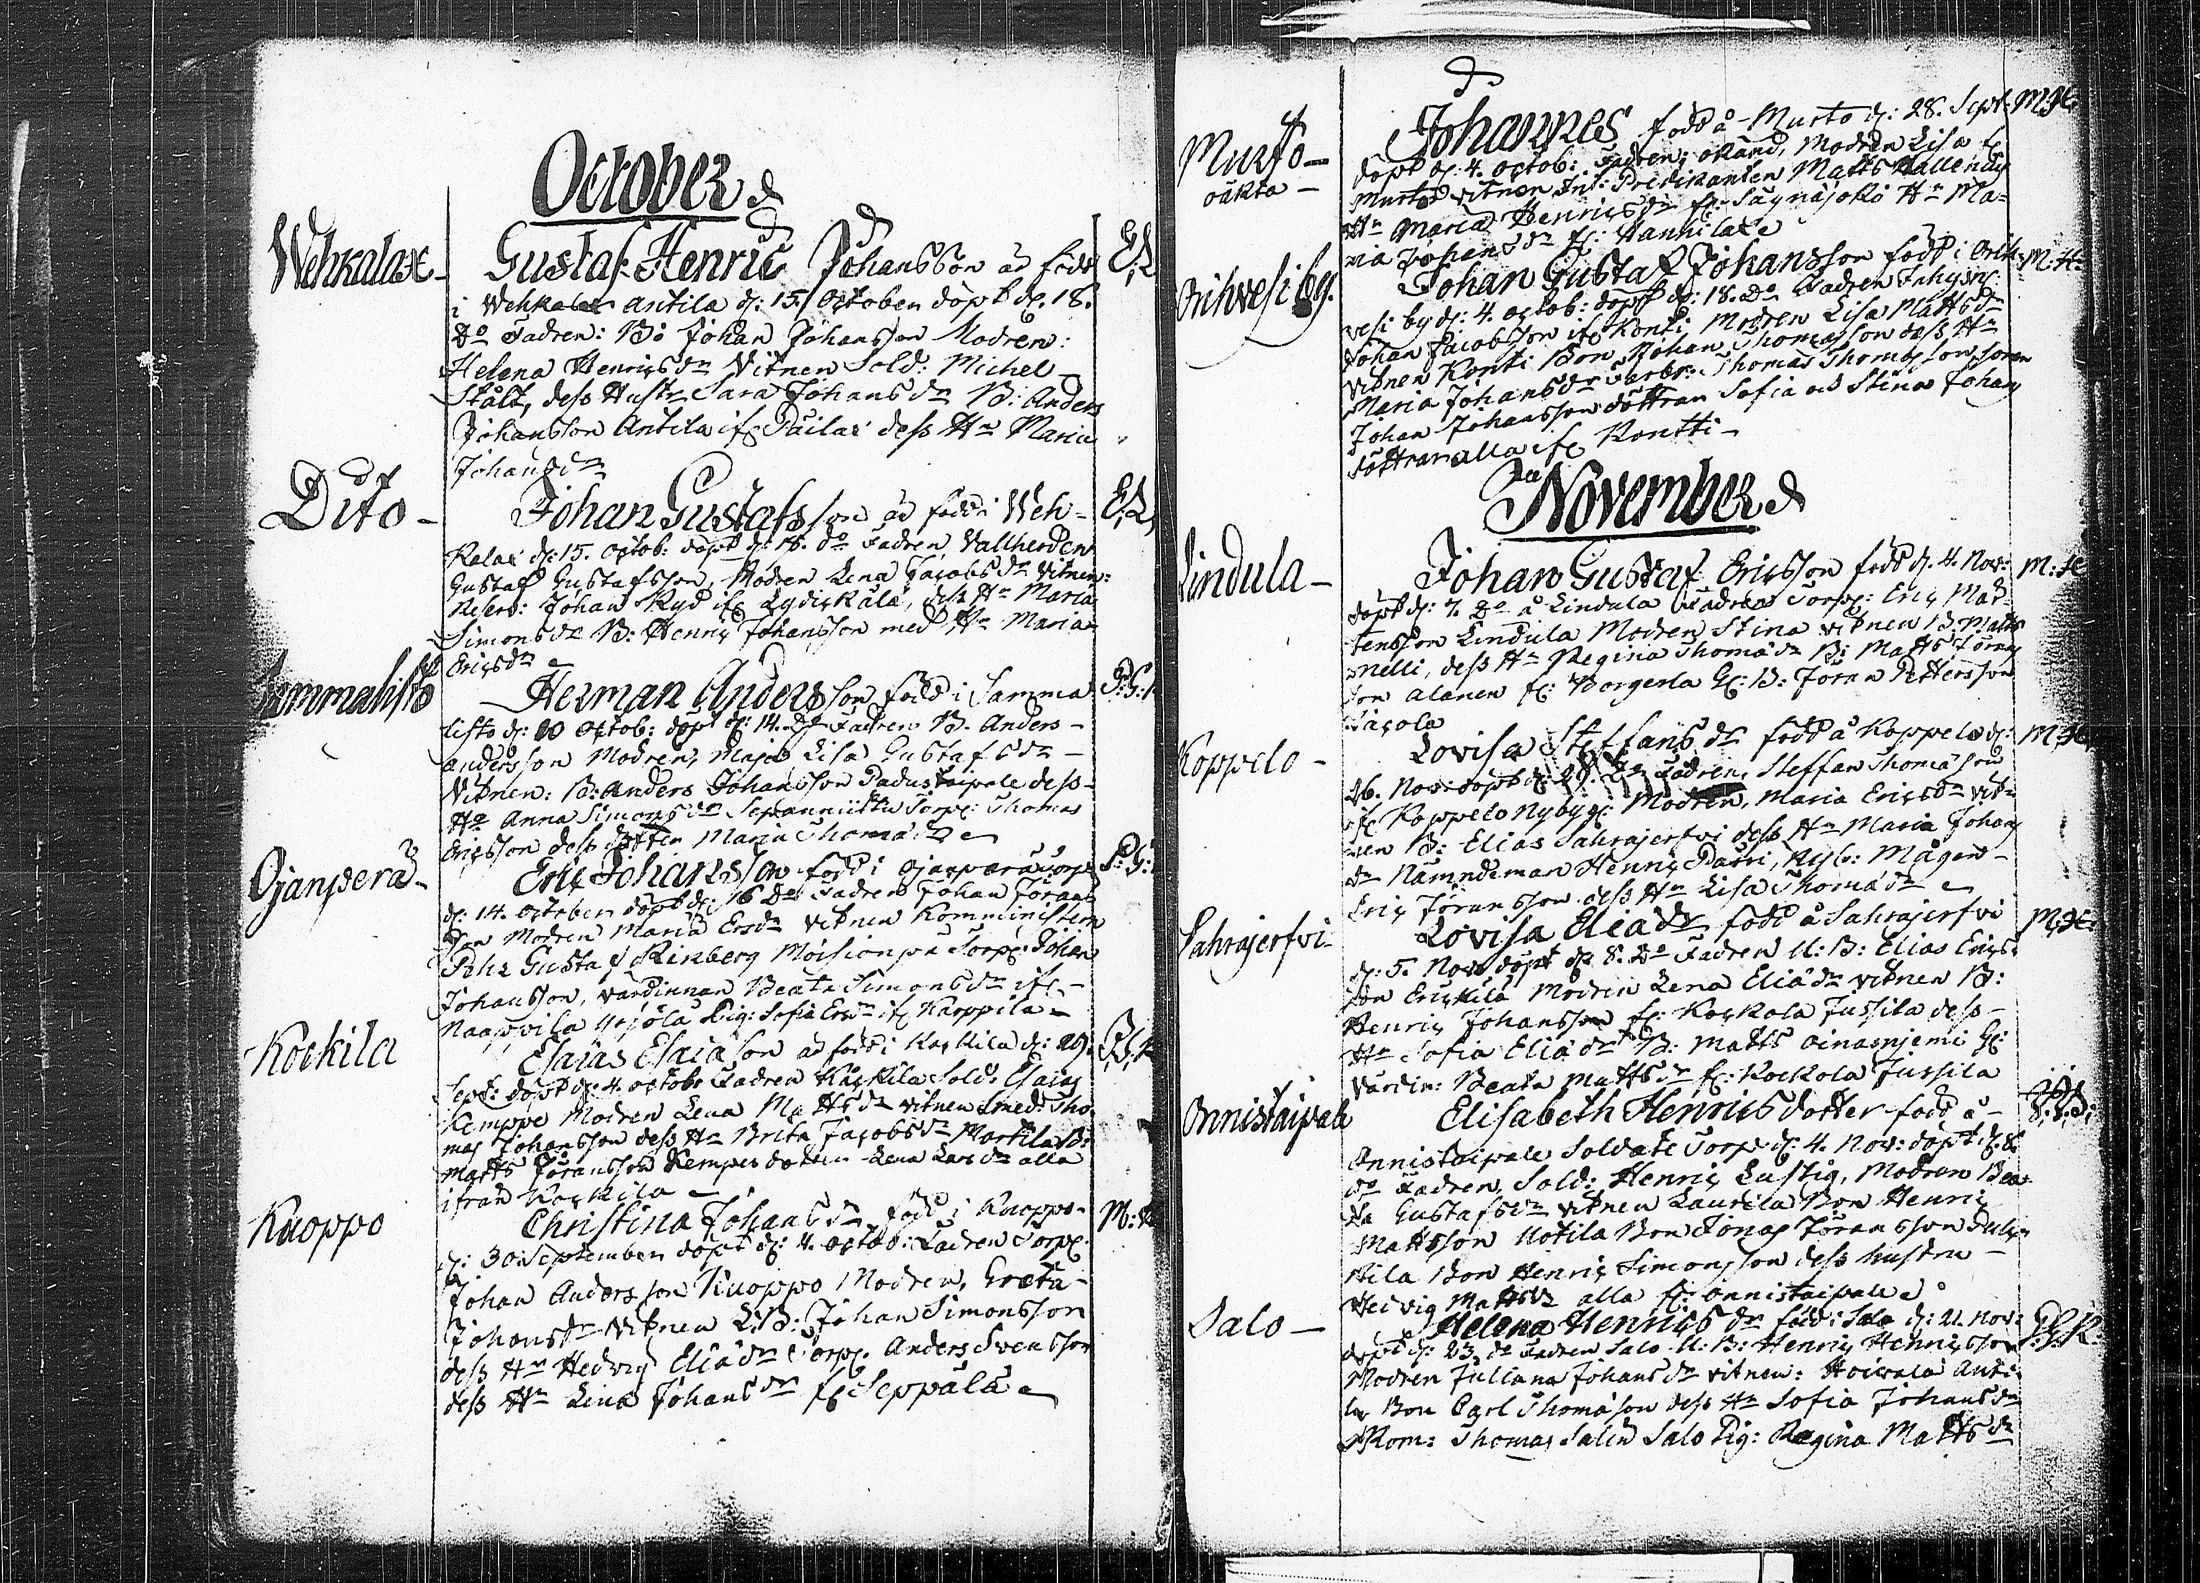 October
Wehkalax - Gustaf Henric Johansson är född E.L
i Wehkalax Antila d: 15 October döpt d: 18.
do Fadren: Bo Johan Johansson Modren:
Helena Henricsdr Vitnen Sold: Michel
Stålt, dess Hustr Sara Johansdr B: Anders
Johansson Antila if Pailax dess Hu Maria
Johansdr
Dito - Johan Gustafsson är född i Weh- E.L
kalax d: 15. Octob: döpt d: 18. do Fadren Vallherden
Gustaf Gustafsson, Modren Lena Jacobsdr Vitnen:
Reserv: Johan Ryd if Lydickälä, dess Hu Maria
Simonsdr B: Henric Johansson med Hu Maria
Ericsdr
Sammalisto Herman Andersson född i Samma
listo d: 10 Octob: döpt d: 14. do Fadren B. Anders
Andersson Modren, Maja Lisa Gustafsdr
Vitnen: B: Anders Johansson Padustaipale dess
Hu Anna Simonsdr Torp: Thomas
Ericsson dess dotter Maria Thomædr
Ojanperä - Eric Johansson född i Ojanperä torp
d: 14. October döpt d: 16 do Fadren Johan Jörans
son Modren Maria Ersdr Vitnen Komministern
Gustaf Rinberg Moision Torp: Johan
Johansson, Värdinnan Beata Simonsdr if
Naappila Yrjölä Pig: Sofia Ersdr if Kaappila
Kockila Esaias Esaiæson är född i Kockila d: 29.
Sept: döpt d: 4. octobr Fadren Kåckila Sold: Esaias
Kemppe Modren Lena Mattsdr Vitnen Smed: Tho
mas Johansson dess Hu Brita Jacobsdr Mattila B:
Matts Jöransson Kempes dotter Lena Larsdr alla
ifrån Kockila
Kuoppo Christina Johansdr född i Kuoppo M:H
d: 30. September döpt d: 4. octob: Fadren Torp:
Johan Andersson Kuoppo Modren, Greta
Johansdr Vitnen L:B: Johan Simonsson
dess Hu Hedvig Eliædr Torp. Anders Svensson
dess Hu Lena Johansdr if Seppälä
Musto oäkta - Johannes född å Musto d: 28. Sept: M:H:
döpt d: 4. octob: Fadren, okänd, Modren Lisa if
Musto Vitnen Int: Predikanten Matts Hallenius
Hu Maria Henricsdr if: Säynäjoki Hu Ma-
ria Johansdr if: Hannila
Orihvesi by. Johan Gustaf Johansson född i Orih- M:H:
vesi by d: 4. octob: döpt d: 18. do Fadren Inhysing:
Johan Jacobsson if Konti, Modren Lisa Mattsdr
Vitnen Konti Bon Johan Thomasson dess Hu
Maria Johansdr Farbr: Thomas Thomasson sonen
Johan Johansson döttran Sofia och Stina Johans
döttran alla if Kontti -
November
Lindula - Johan Gustaf Ericsson född d. 4. Nov: M:H
döpt d: 7. do å Lindula Fadren Torp: Eric Mår-
tensson Lindula Modren Stina Vitnen B: Matts
Nelli, dess Hu Regina Thomædr B: Matts Jörans
son Alanen if: Borgerla Gl: B: Jöran Pettersson
Jacola
Koppelo - Lovisa Steffansdr född å Koppelo d: M:H
26. Nov: döpt d: 29. do Fadren, Steffan Thomæson
if Koppelo Nyby Modren, Maria Ericsdr Vit-
nen B: Elias Sahrajerfvi dess Hu Maria Johans
dr Nämndeman Henric Paavi, Nyb: Mågen
Eric Jöransson dess Hu Lisa Thomædr
Sahrajerfvi Lovisa Eliædr född å Sahrajerfvi M:H:
d: 5. Nov: döpt d: 8. do Fadren U: B: Elias Erics
son Erickilä Modren Lena Eliædr Vitnen B:
Henric Johansson if: Kockola Jussila dess
Hu Sofia Eliædr B: Matts Oinasniemi
Värdin: Beata Mattsdr if: Kockola Jussila
Onnistaipale Elisabeth Henricsdotter född å
Onnistaipale Soldate Torp d: 4. Nov: döpt d: 8
do Fadren, Sold: Henric Lustig, Modren Bea-
ta Gustafsdr Vitnen Laurila Bon Henric
Mattsson Uotila Bon Jonas Jöransson
Bon Henric Simonsson dess hustru
Hedvig Mattsdr alla if Onnistaipale
Salo - Helena Henricsdr född i Salo d: 21. Nov:
döpt d: 23. do Fadren Salo U: B: Henric Henricsson
Modren Juliana Johansdr Vitnen: Hoivala Anti-
la Bon Carl Thomæson dess Hu Sofia Johansdr
Rom: Thomas Salin Salo Pig: Regina Mattsdr